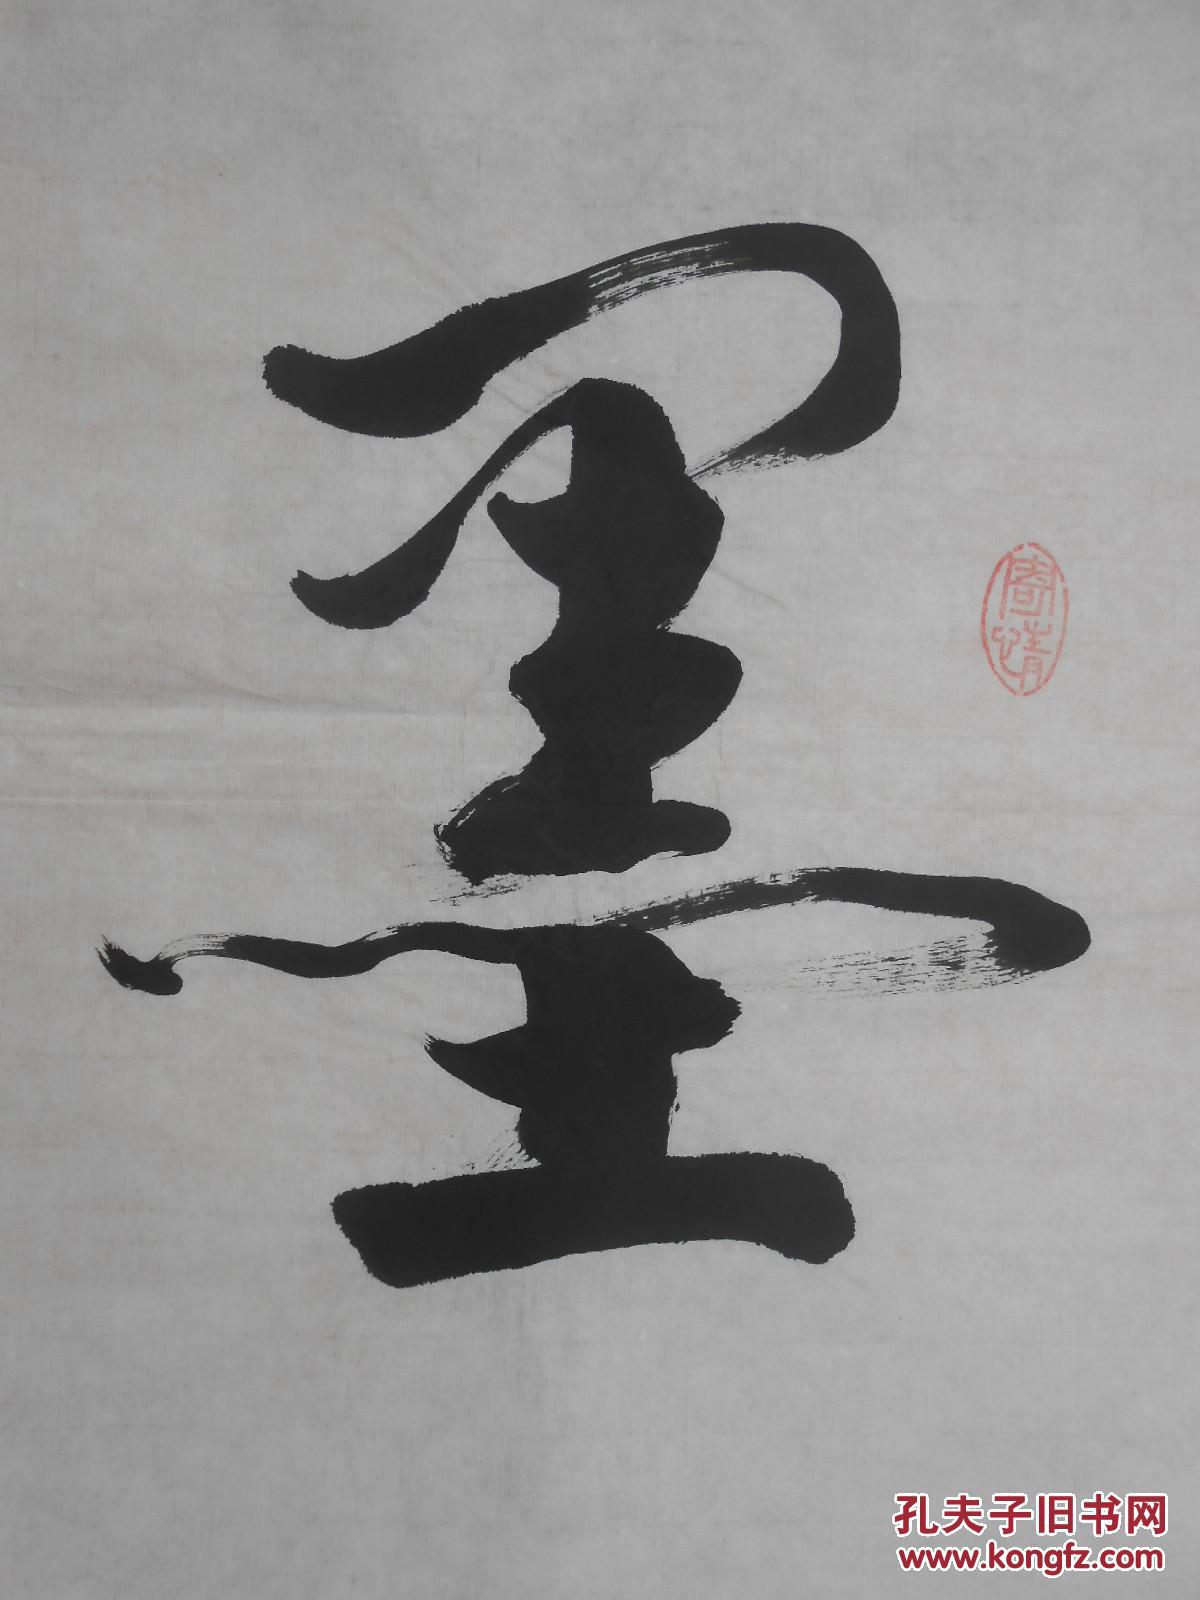 墨
孔夫子旧书网
www.kongfz.com